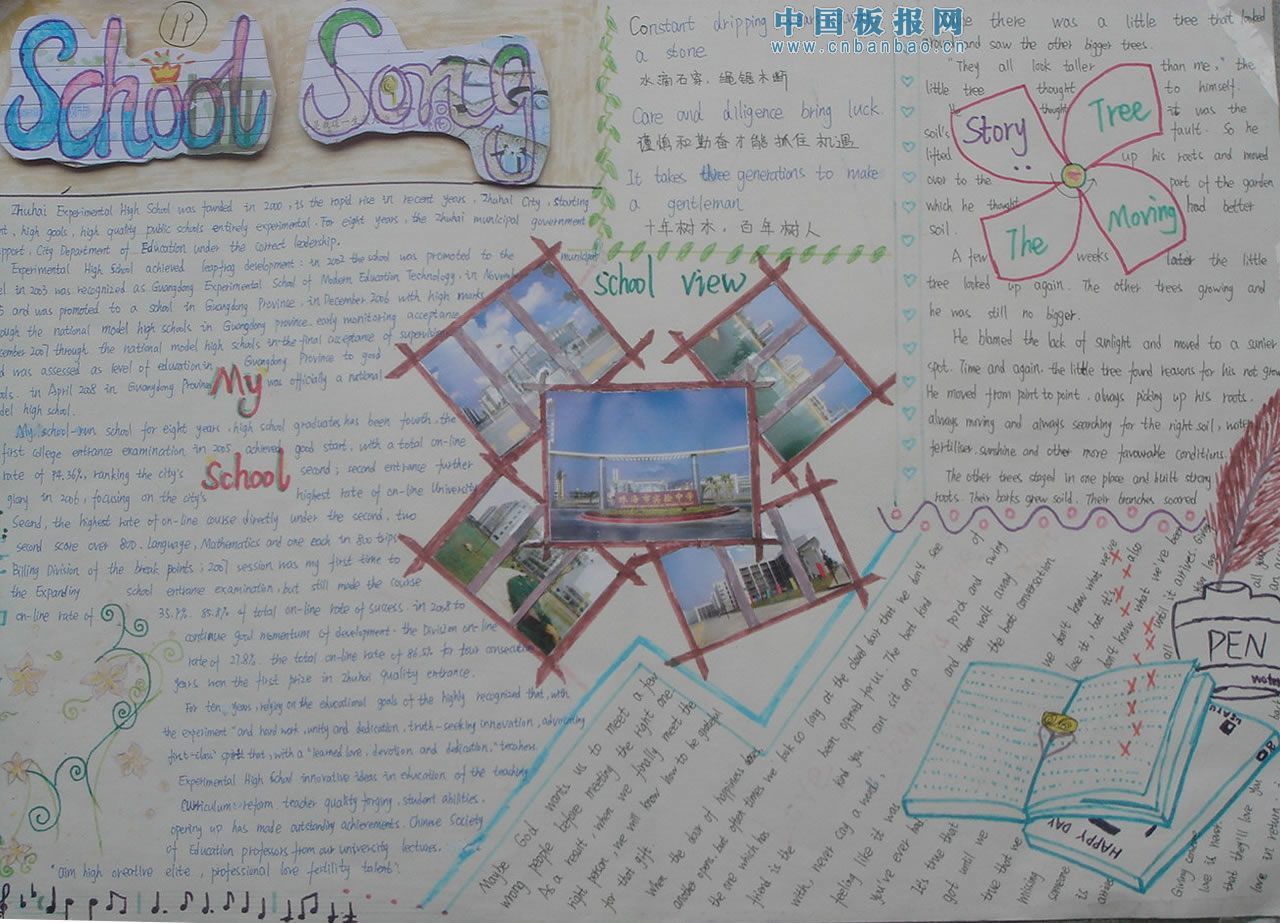 School Song
19
中国板报网
www.cnbanbao.cn
Zhuhai Experimental High School was founded in 2000, is the rapid rise in recent years, Zhuhai City, starting
high goals, high quality public schools entirely experimental. For eight years, the Zhuhai municipal government
City Department of Education under the correct leadership.
Experimental High School achieved leapfing development: in 2002 the school was promoted to the municipal
in 2003 was recognized as Guangdong Experimental School of Modern Education Technology, in November
and was promoted to a school in Guangdong Province, in December 2006 with high marks
the national model high schools in Guangdong province early monitoring acceptance
2007 through the national model high schools in the final acceptance of supervision
was assessed as level of education in Guangdong Province to good
in April 2008 in Guangdong Province was officially a national
high school.
My School
My school-run school for eight years, high school graduates has been fourth, the
first college entrance examination in 2005 achieved good start, with a total on-line
rate of 74.36%, ranking the city's second; second entrance further
glory in 2006, focusing on the city's highest rate of on-line University
Second, the highest rate of on-line course directly under the second, two
second score over 800. Language, Mathematics and one each in 800 trips
Billing Division of the break points; 2007 session was my first time to
the Expanding school entrance examination, but still made the course
on-line rate of 35.7%. 85.8% of total on-line rate of sucess. in 2008 to
continue good momentum of development. the Division on-line
rate of 27.8%. the total on-line rate of 86.5% for four consecutive
years won the first prize in Zhuhai quality entrance.
For ten years, relying on the educational goals of the highly recognized that, with
the experiment "and hard work, unity and dedication, truth-seeking innovation, advancing
first-class' spirit that, with a "learned love, devotion and dedication," teachers.
Experimental High School innovative ideas in education of the teaching
Curriculum reform, teacher quality forging, student abilities.
opening up has made outstanding achievements. Chinese Society
of Education professors from our university lectures.
"aim high creative elite, professional love fertility talent".
Constant dripping
a stone
水滴石穿，绳锯木断
Care and diligence bring luck.
谨慎和勤奋才能抓住机遇
It takes three generations to make
a gentleman
十年树木，百年树人
school view
珠海市实验中学
Story Tree
The Moving
there was a little tree that looked
and saw the other bigger trees.
"They all look taller than me," the
little tree thought to himself.
He thought it was the
soil's fault. So he
lifted up his roots and moved
over to the part of the garden
which he thought had better
soil.
A few weeks later the little
tree looked up again. The other trees growing and
he was still no bigger.
He blamed the lack of sunlight and moved to a sunier
spot. Time and again, the little tree found reasons for his not grow
He moved from point to point. always picking up his roots.
always moving and always searching for the right soil, water
fertiliser, sunshine and other more favourable conditions.
The other trees stayed in one place and built strong
roots. Their barks grew soild. Their branches soared
Maybe God wants us to meet a few
wrong people before meeting the right one
As a result, when we finally meet the
right person, we will know how to be grateful
for that gift.
When the door of happiness closes
another opens, but often times we look so long at the closed door that we don't see
the one which has been opened for us. The best kind of
friend is the kind you can sit on a porch and swing
with, never say a word, and then walk away
feeling like it was the best conversation
you've ever had
It's true that we don't know what we've
got until we lose it, but it's also
true that we don't know what we've been
missing until it arrives. Giving
someone all you
is
Giving someone
love is never
that they'll love you
love in return
PEN
HAPPY DAY